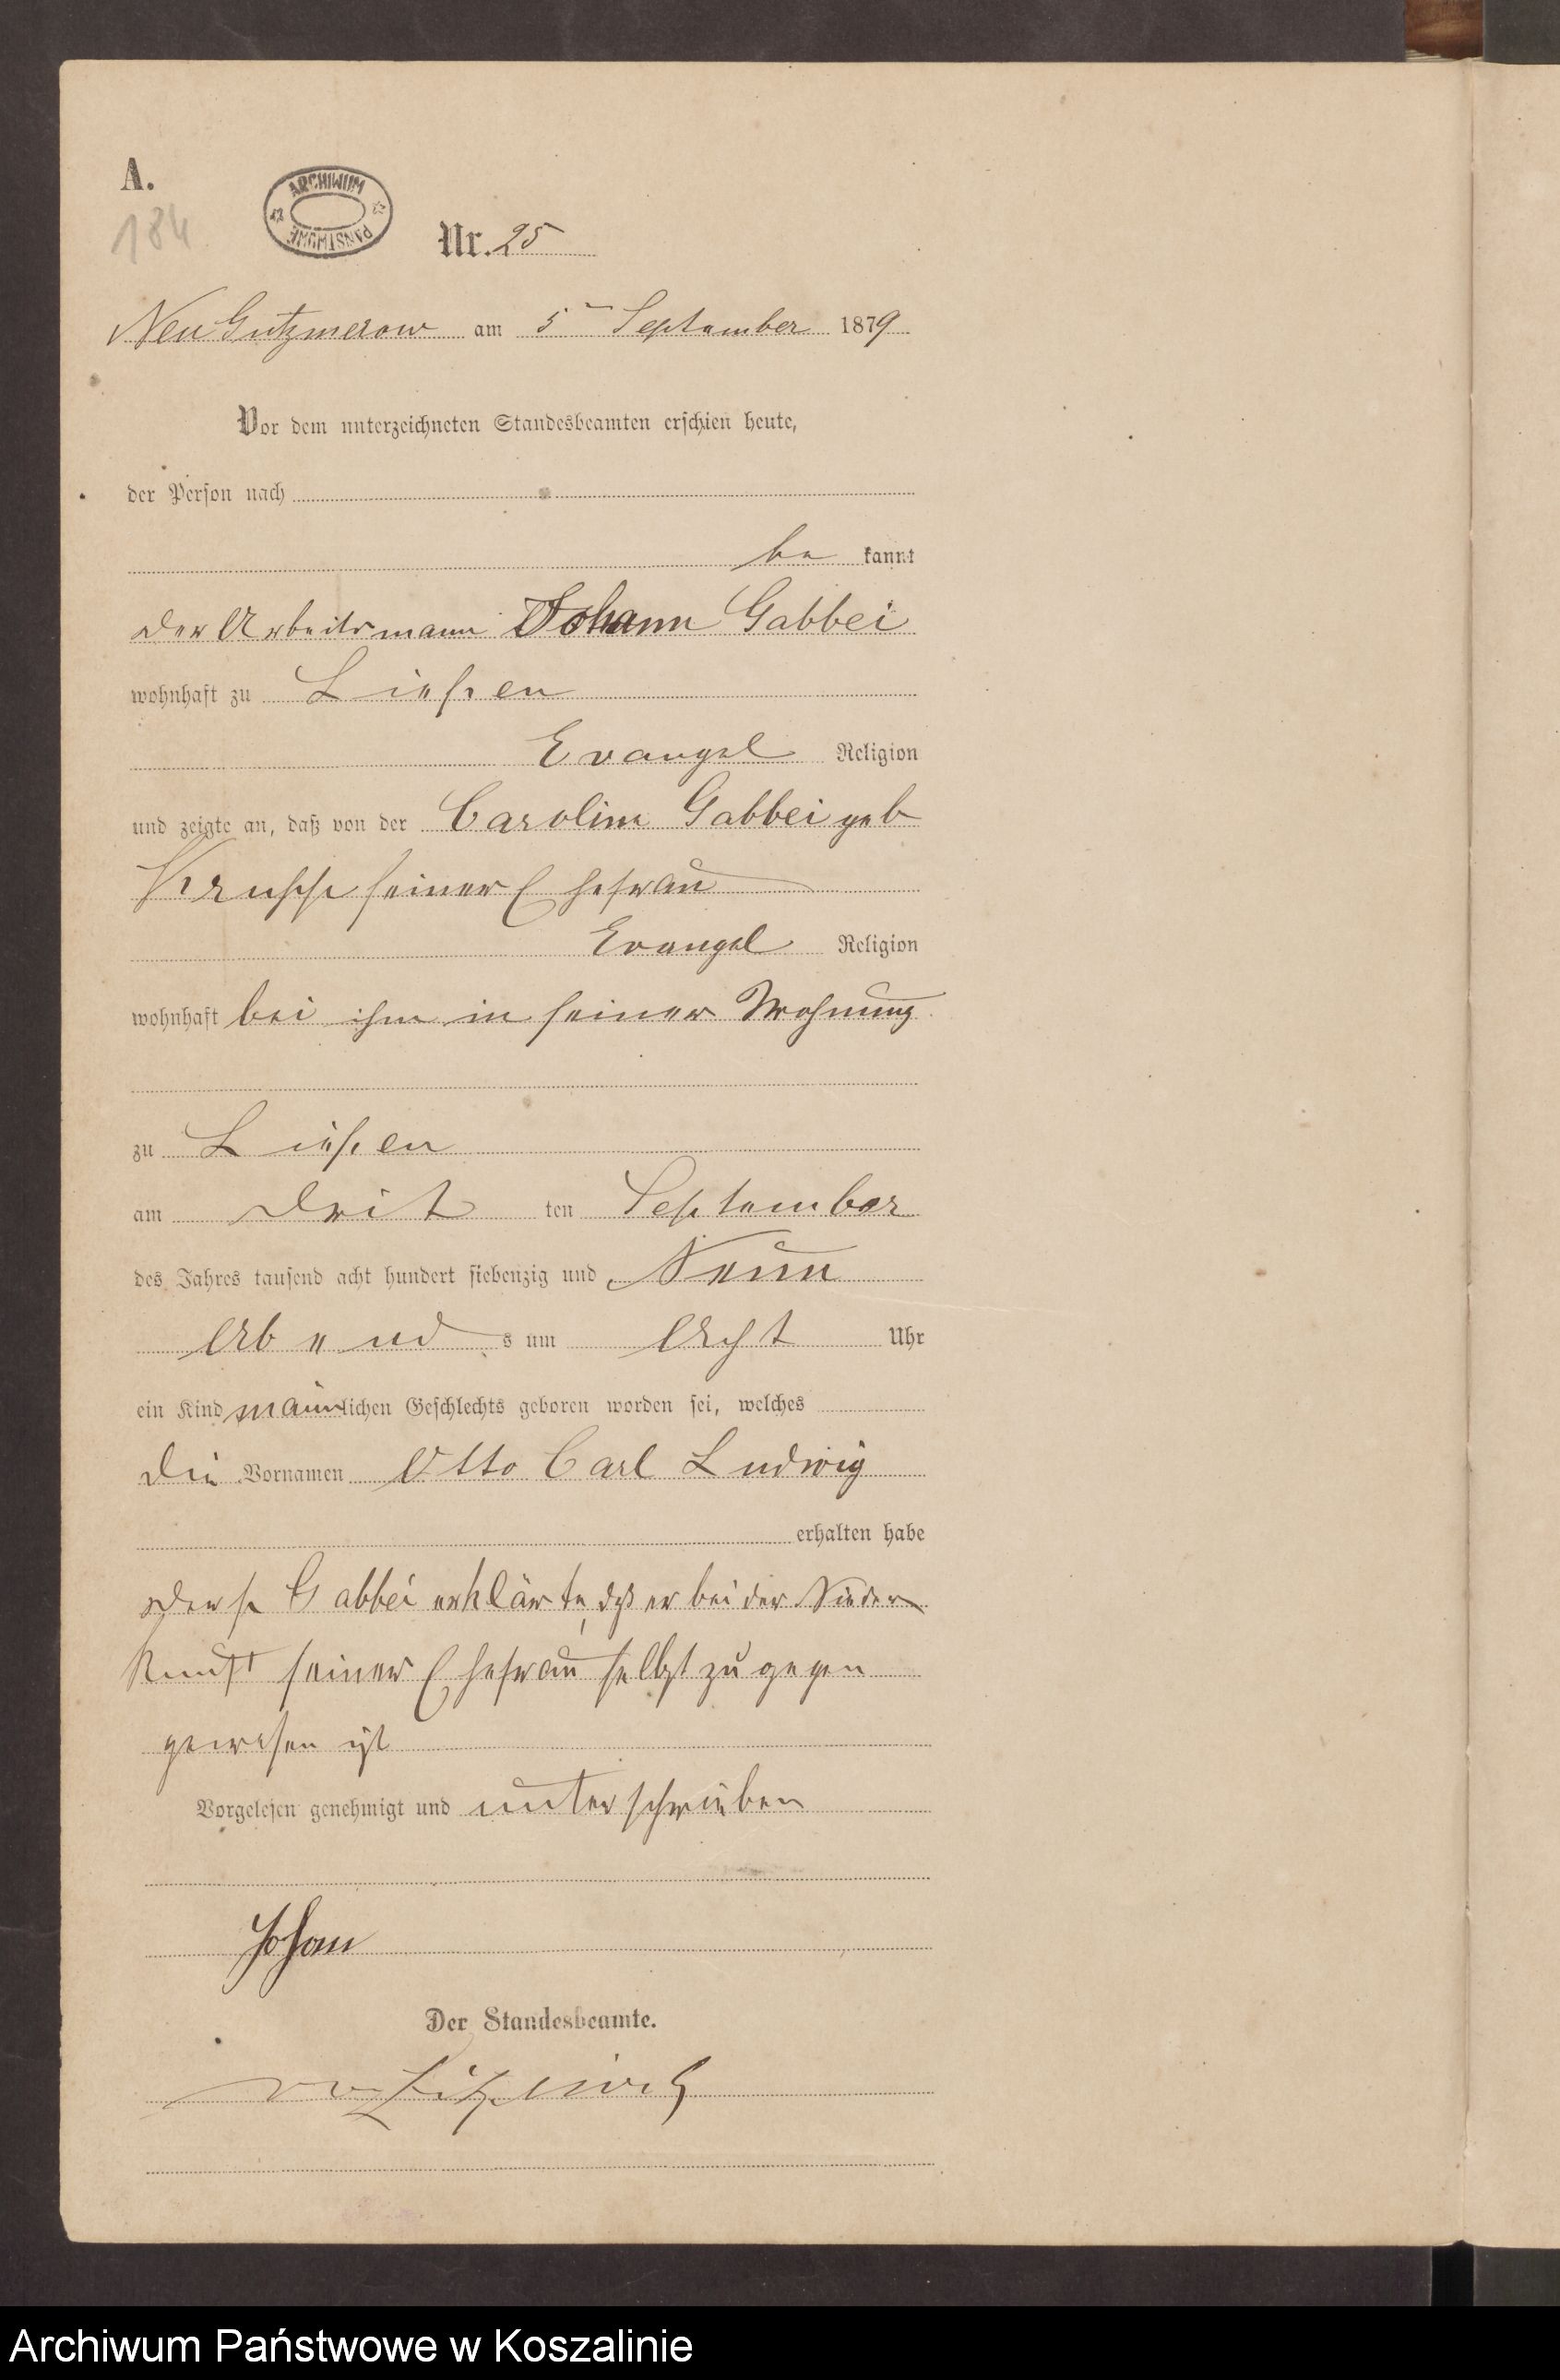 A.
184
ARCHIWUM PAŃSTWOWE
Nr. 25
Neu Gutzmerow am 5ᵗ September 1879
Vor dem unterzeichneten Standesbeamten erschien heute,
der Person nach
be kannt
der Arbeitsmann Johann Gabbei
wohnhaft zu Ließen
Evangel Religion
und zeigte an, daß von der Caroline Gabbei geb
seiner Ehefrau
Evangel Religion
wohnhaft bei ihm in seiner Wohnung
zu Ließen
am Drit ten September
des Jahres tausend acht hundert siebenzig und Neun
Abend s um Acht Uhr
ein Kind männlichen Geschlechts geboren worden sei, welches
die Vornamen Otto Carl Ludwig
erhalten habe
Gabbei erklärte, daß er bei der Nieder
kunft seiner Ehefrau selbst zu gegen
gewesen ist
Vorgelesen genehmigt und unterschrieben
Johan
Der Standesbeamte.
Archiwum Państwowe w Koszalinie